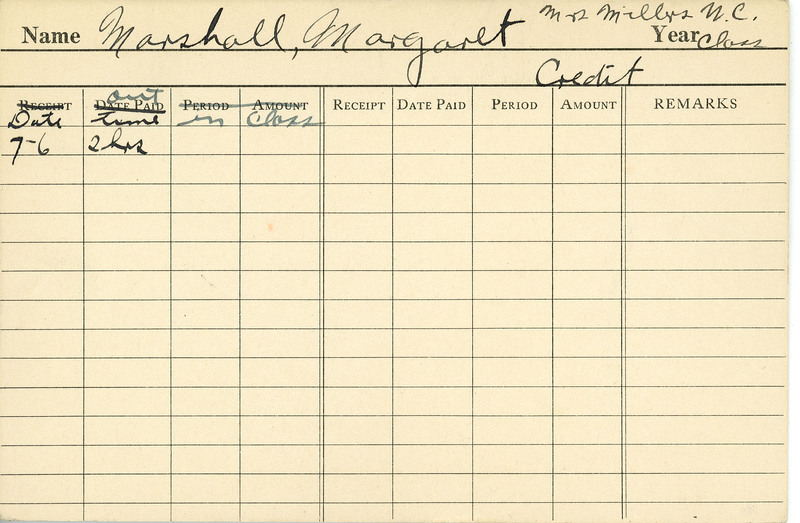 Mrs Millers N.C.
Name Marshall, Margaret Year Class
Credit
RECEIPT DATE PAID PERIOD AMOUNT RECEIPT DATE PAID PERIOD AMOUNT REMARKS
out
Date time in Class
7-6 2 hrs